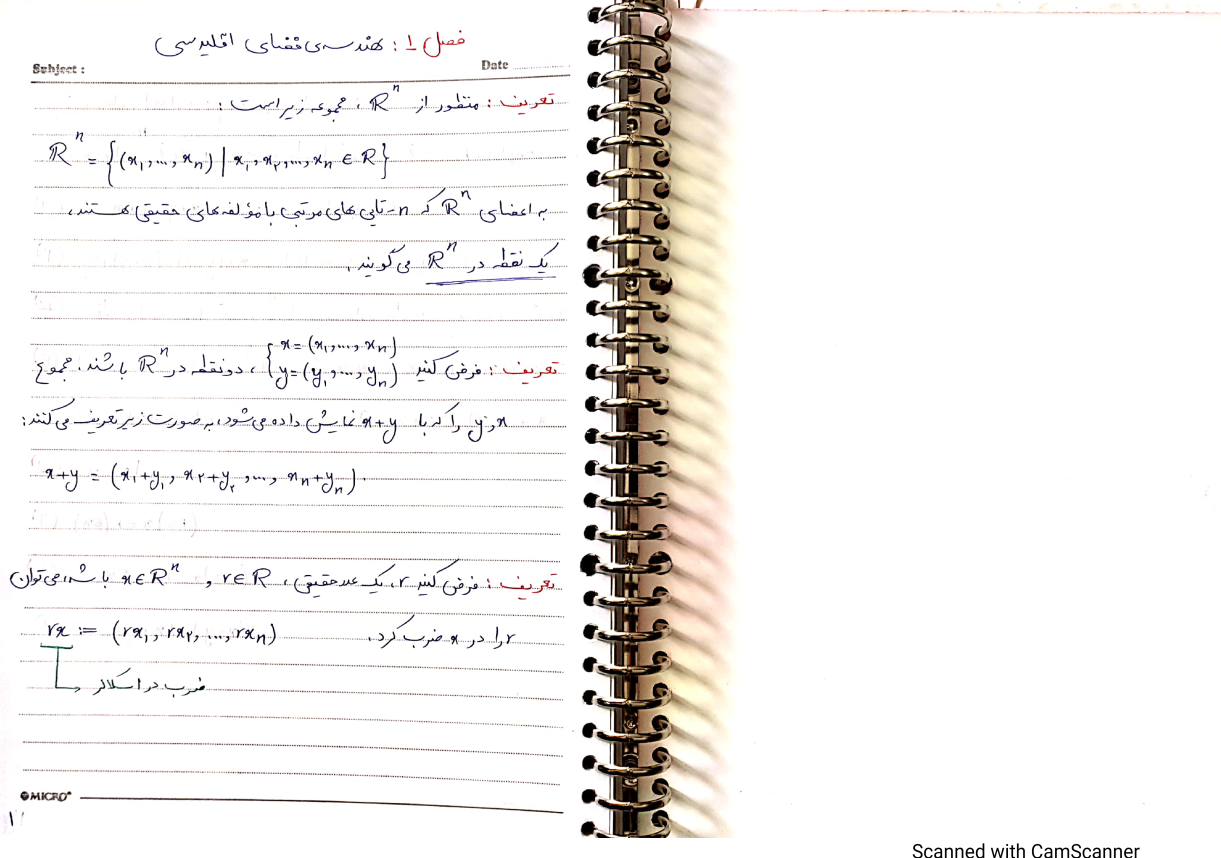 فصل 1 : هندسه‌ی فضای اقلیدسی
Subject :
Date
تعریف : منظور از Rⁿ ، مجموعه زیر است :
Rⁿ = {(x₁, ..., xₙ) | x₁, x₂, ..., xₙ ∈ R}
به اعضای Rⁿ که n-تایی های مرتبی با مؤلفه های حقیقی هستند،
یک نقطه در Rⁿ می گویند.
تعریف : فرض کنید { x = (x₁, ..., xₙ)
y = (y₁, ..., yₙ) ، دو نقطه در Rⁿ باشند. مجموع
x و y را که با x+y نمایش داده می شود، به صورت زیر تعریف می کنند :
x+y = (x₁+y₁, x₂+y₂, ..., xₙ+yₙ).
تعریف : فرض کنید r ، یک عدد حقیقی ، r ∈ R و x ∈ Rⁿ باشد، می توان
r را در x ضرب کرد. rx := (rx₁, rx₂, ..., rxₙ)
ضرب در اسکالر
MICRO
1
Scanned with CamScanner